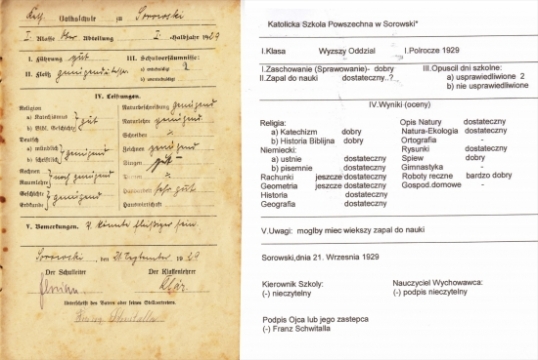 Kath. Volksschule zu Sorowski
I. Klasse Abteilung I. Halbjahr 1929
I. Führung gut
II. Fleiß genügend
III. Schulversäumnisse:
a) entschuldigt 2
b) unentschuldigt
IV. Leistungen.
Religion
a) Katechismus } gut
b) Bibl. Geschichte
Deutsch
a) mündlich } genügend
b) schriftlich
Rechnen } noch genügend
Raumlehre
Geschichte } genügend
Erdkunde
Naturbeschreibung genügend
Naturlehre genügend
Schreiben
Zeichnen genügend
Singen gut
Turnen
sehr gut
Handarbeit
V. Bemerkungen. könnte fleißiger sein
Sorowski, den 21. September 1929
Der Schulleiter Der Klassenlehrer
Unterschrift des Vaters oder seines Stellvertreters.
Franz Schwitalla
Katolicka Szkola Powszechna w Sorowski*
I.Klasa Wyzszy Oddzial I.Polrocze 1929
I.Zaschowanie (Sprawowanie)- dobry
II.Zapal do nauki dostateczny..?
III.Opuscil dni szkolne:
a) usprawiedliwione 2
b) nie usprawiedliwione
IV.Wyniki (oceny)
Religia:
a) Katechizm dobry
b) Historia Biblijna dobry
Niemiecki:
a) ustnie dostateczny
b) pisemnie dostateczny
Rachunki jeszcze dostateczny
Geometria jeszcze dostateczny
Historia dostateczny
Geografia dostateczny
Opis Natury dostateczny
Natura-Ekologia dostateczny
Ortografia -
Rysunki dostateczny
Spiew dobry
Gimnastyka -
Roboty reczne bardzo dobry
Gospod.domowe -
V.Uwagi: moglby miec wiekszy zapal do nauki
Sorowski,dnia 21. Wrzesnia 1929
Kierownik Szkoly: Nauczyciel Wychowawca:
(-) nieczytelny (-) podpis nieczytelny
Podpis Ojca lub jego zastepca
(-) Franz Schwitalla